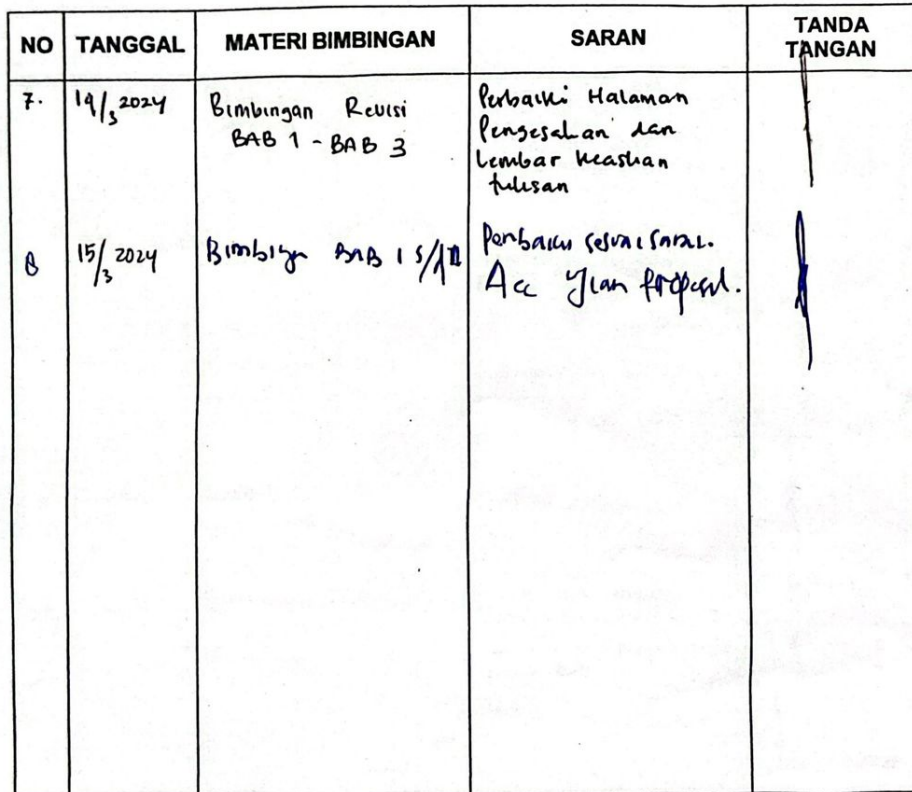 NO TANGGAL MATERI BIMBINGAN SARAN TANDA TANGAN
7. 14/3 2024 Bimbingan Revisi Perbaiki Halaman
BAB 1 - BAB 3 Pengesahan dan
Lembar keaslian
tulisan
8 15/3 2024 Bimbingn BAB I S/d III Perbaiki sesuai saran.
Acc Ujian proposal.